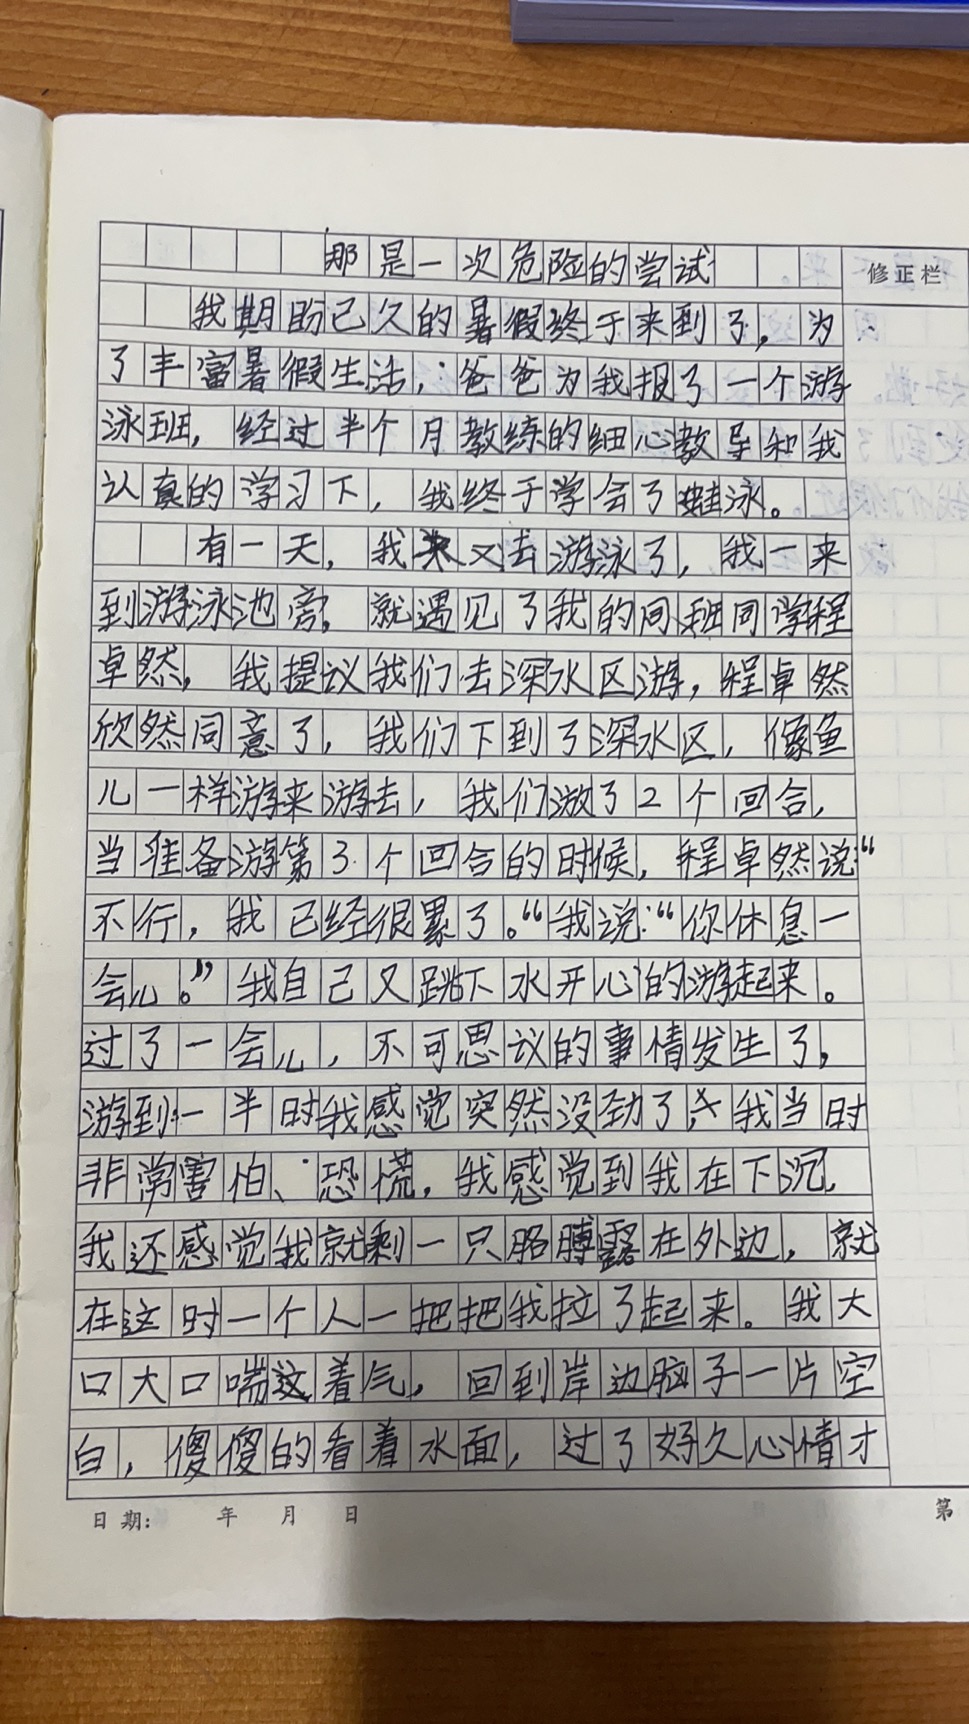 那是一次危险的尝试
修正栏
我期盼已久的暑假终于来到了。为
了丰富暑假生活，爸爸为我报了一个游
泳班，经过半个月教练的细心教导和我
认真的学习下，我终于学会了蛙泳。
有一天，我又去游泳了，我一来
到游泳池旁，就遇见了我的同班同学程
卓然，我提议我们去深水区游，程卓然
欣然同意了，我们下到了深水区，像鱼
儿一样游来游去，我们游了2个回合，
当准备游第3个回合的时候，程卓然说：“
不行，我已经很累了。“我说：“你休息一
会儿。”我自己又跳下水开心的游起来。
过了一会儿，不可思议的事情发生了，
游到一半时我感觉突然没劲了，我当时
非常害怕、恐慌，我感觉到我在下沉，
我还感觉我就剩一只胳膊露在外边，就
在这时一个人一把把我拉了起来。我大
口大口喘这着气，回到岸边脑子一片空
白，傻傻的看着水面，过了好久心情才
日期： 年 月 日
第